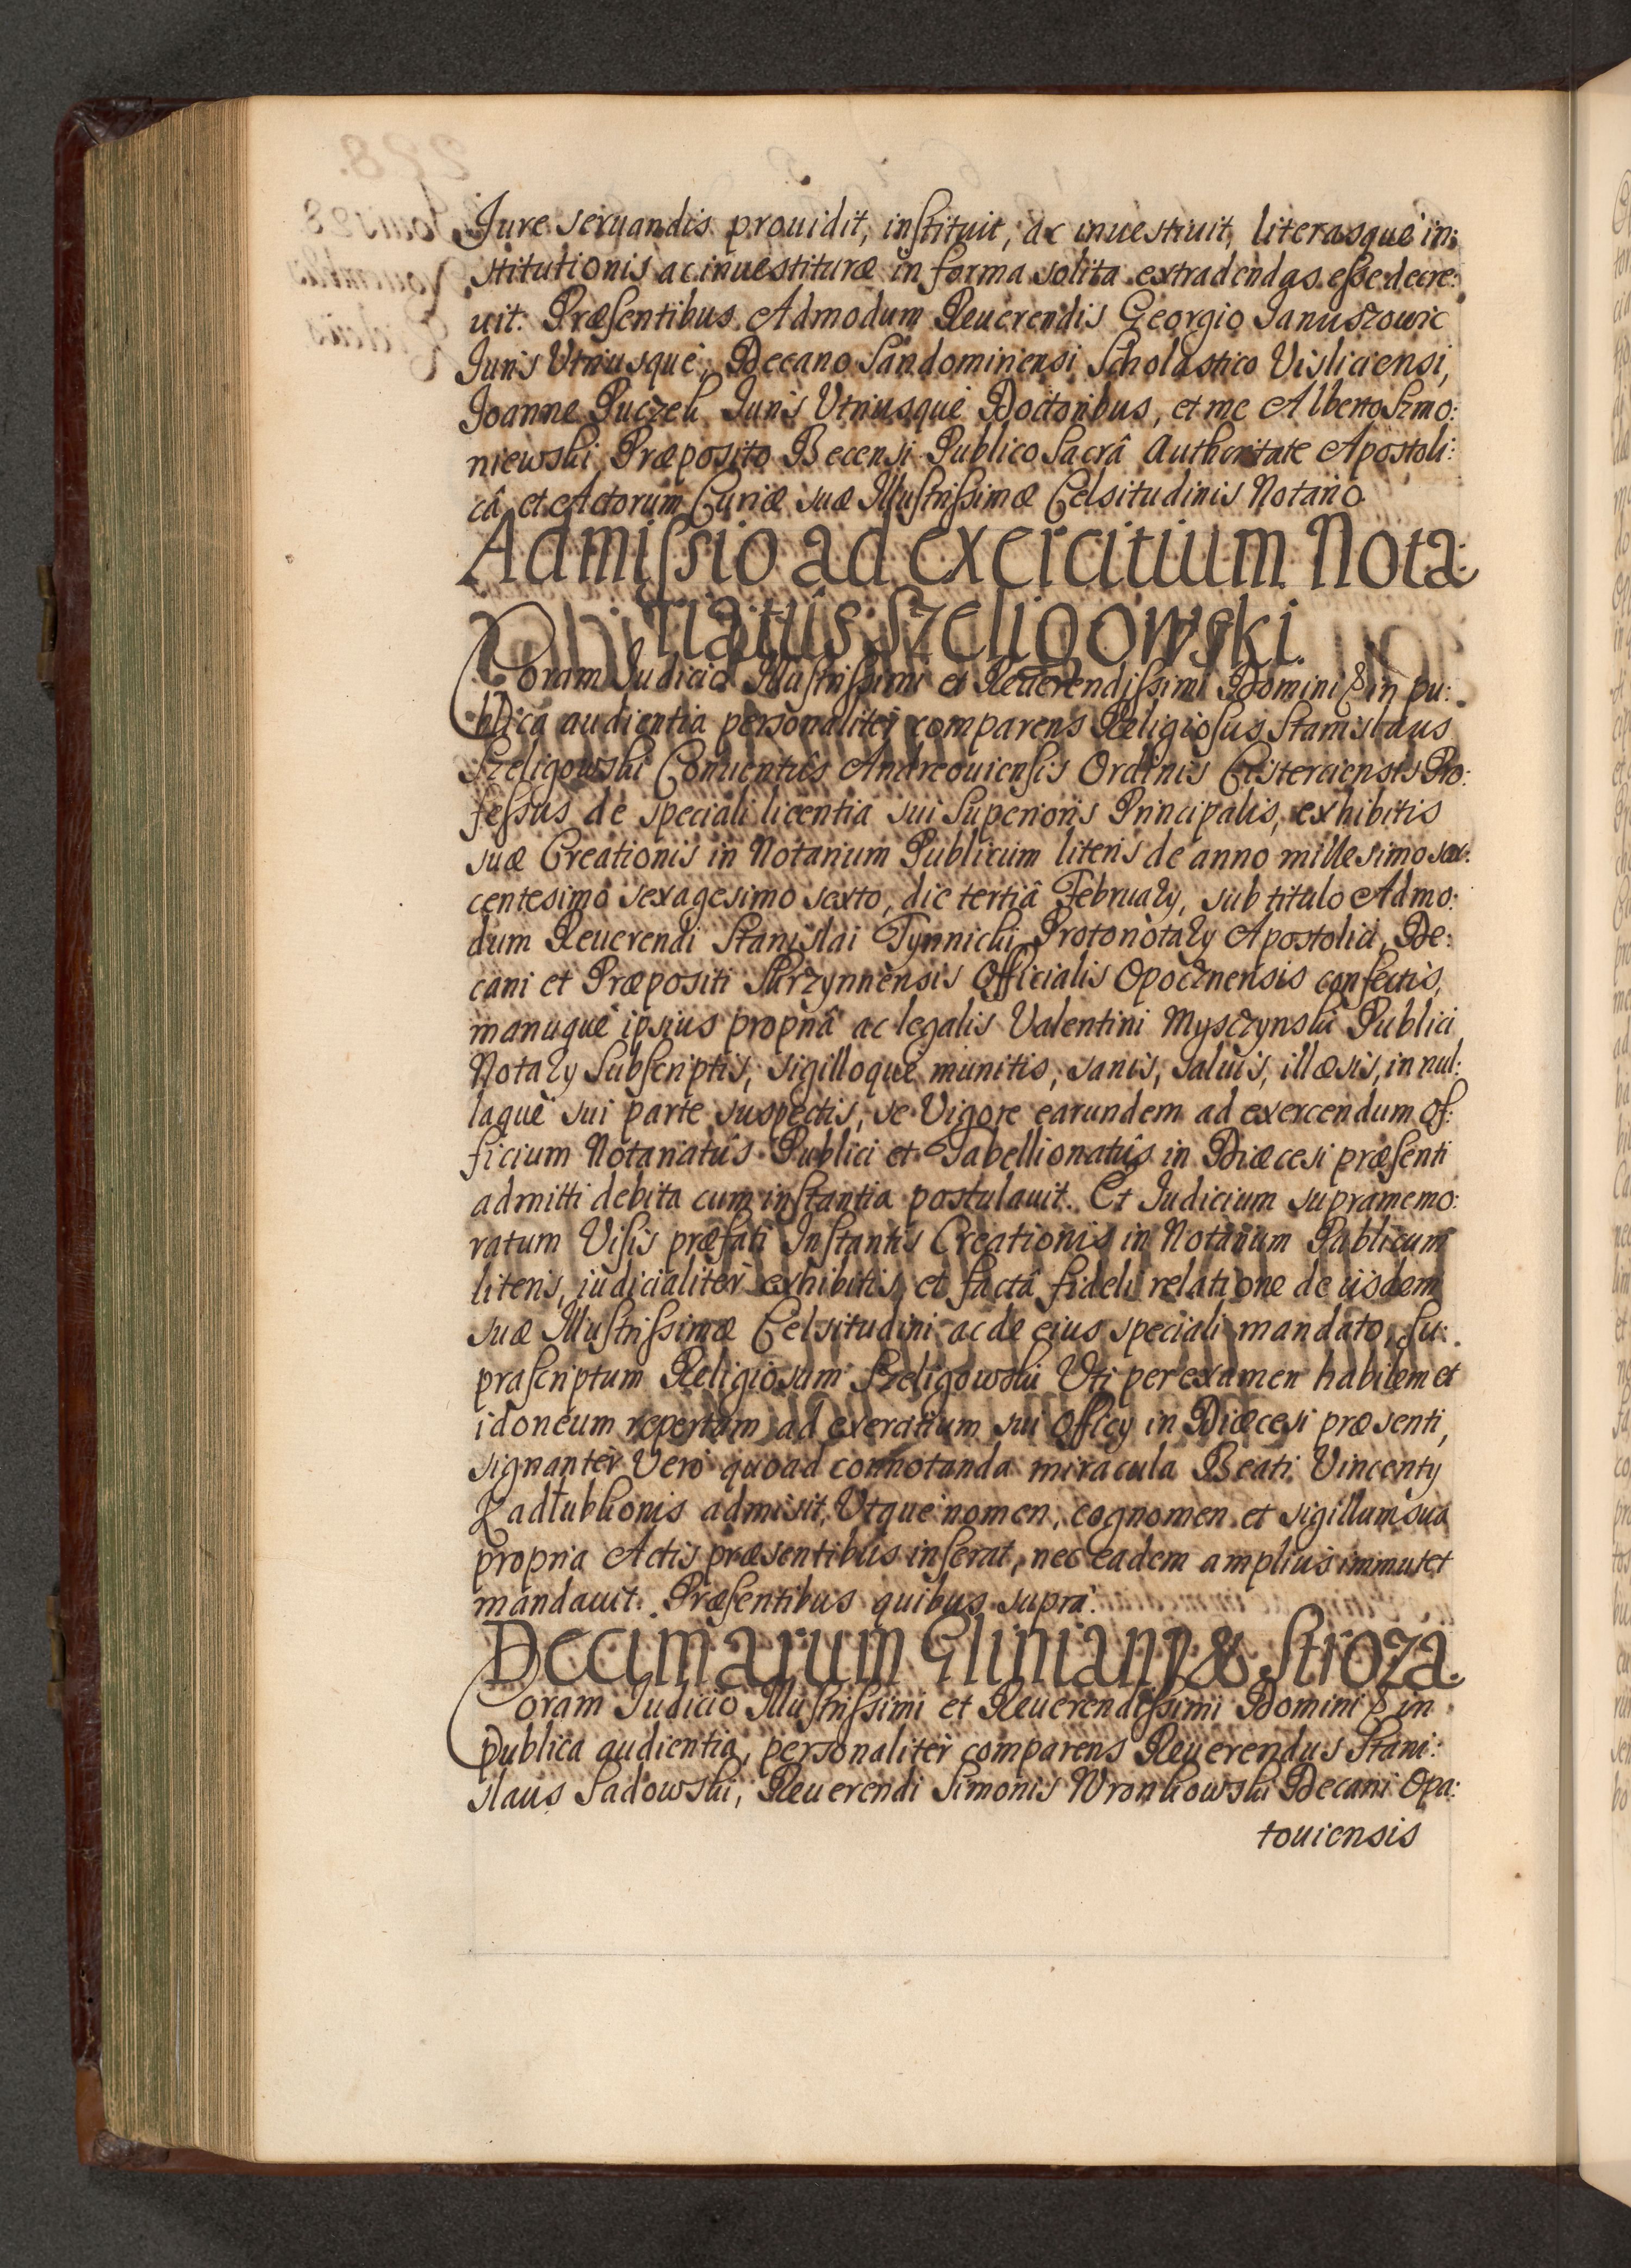 Jure seruandis prouidit, instituit, ac inuestiuit, literasque in:
stitutionis ac inuestituræ in forma solita extradendas esse decre:
uit. Præsentibus Admodum Reuerendis Georgio Januszowic
Juris Utriusque, Decano Sandomiriensi Scholastico Visliciensi,
Joanne Puczek Juris Utriusque Doctoribus, et me Alberto Szmo:
niewski, Præposito Becensi Publico Sacrâ Authoritate Apostoli:
câ et Actorum Curiæ suæ Illustrissimæ Celsitudinis Notario
Admissio ad exercitium Nota:
riatûs Szeligowski.
Coram Judicio Illustrissimi et Reuerendissimi Domini & in pu:
blica audientia personaliter comparens Religiosus Stanislaus
Szeligowski Conuentûs Andreouiensis Ordinis Cisterciensis Pro:
fessus de speciali licentia sui Superioris Principalis, exhibitis
suæ Creationis in Notarium Publicum literis de anno millesimo sex:
centesimo sexagesimo sexto, die tertiâ February, sub titulo Admo:
dum Reuerendi Stanislai Tynnicki Protonotary Apostolici, De:
cani et Præpositi Skrzynnensis Officialis Opocznensis confectis,
manuque ipsius propriâ ac legalis Valentini Mysczynski Publici
Notary Subscriptis, sigilloque munitis, sanis, saluis, illæsis, in nul:
laque sui parte suspectis, se Vigore earundem ad exercendum Of:
ficium Notariatûs Publici et Tabellionatûs in Diæcesi præsenti
admitti debita cum instantia postulauit. Et Judicium supramemo:
ratum Visis præfati Instantis Creationis in Notarium Publicum
literis, judicialiter exhibitis, et factâ fideli relatione de iisdem
suæ Illustrissimæ Celsitudini ac de eius speciali mandato, su:
prascriptum Religiosum Szeligowski Uti per examen habilem et
idoneum repertum ad exercitium sui Officy in Diæcesi præsenti,
signanter Vero quoad connotanda miracula Beati Vincenty
Kadłubkonis admisit, Utque nomen, cognomen et sigillum sua
propria Actis præsentibus inserat, nec eadem amplius immutet
mandauit. Præsentibus quibus supra.
Decimarum Gliniany & Stroza.
Coram Judicio Illustrissimi et Reuerendissimi Domini & in
publica audientia, personaliter comparens Reuerendus Stani:
slaus Sadowski, Reuerendi Simonis Wronkowski Decani Opa:
touiensis